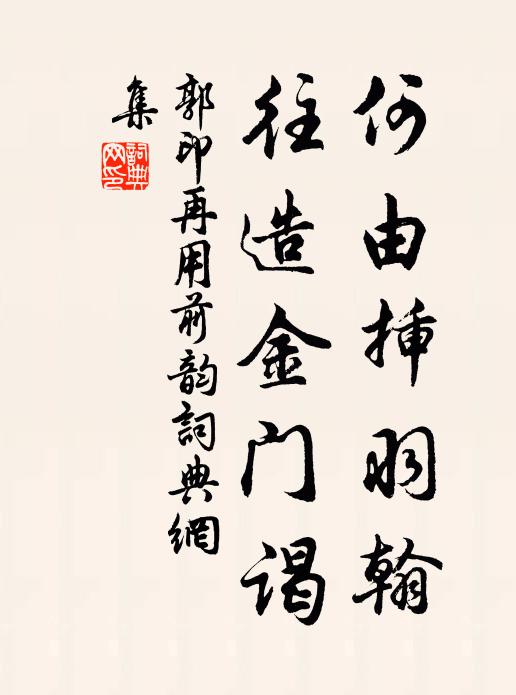 何由挿羽翰
往造金门谒
郭印再用前韵詞典網
集
詞典
网印